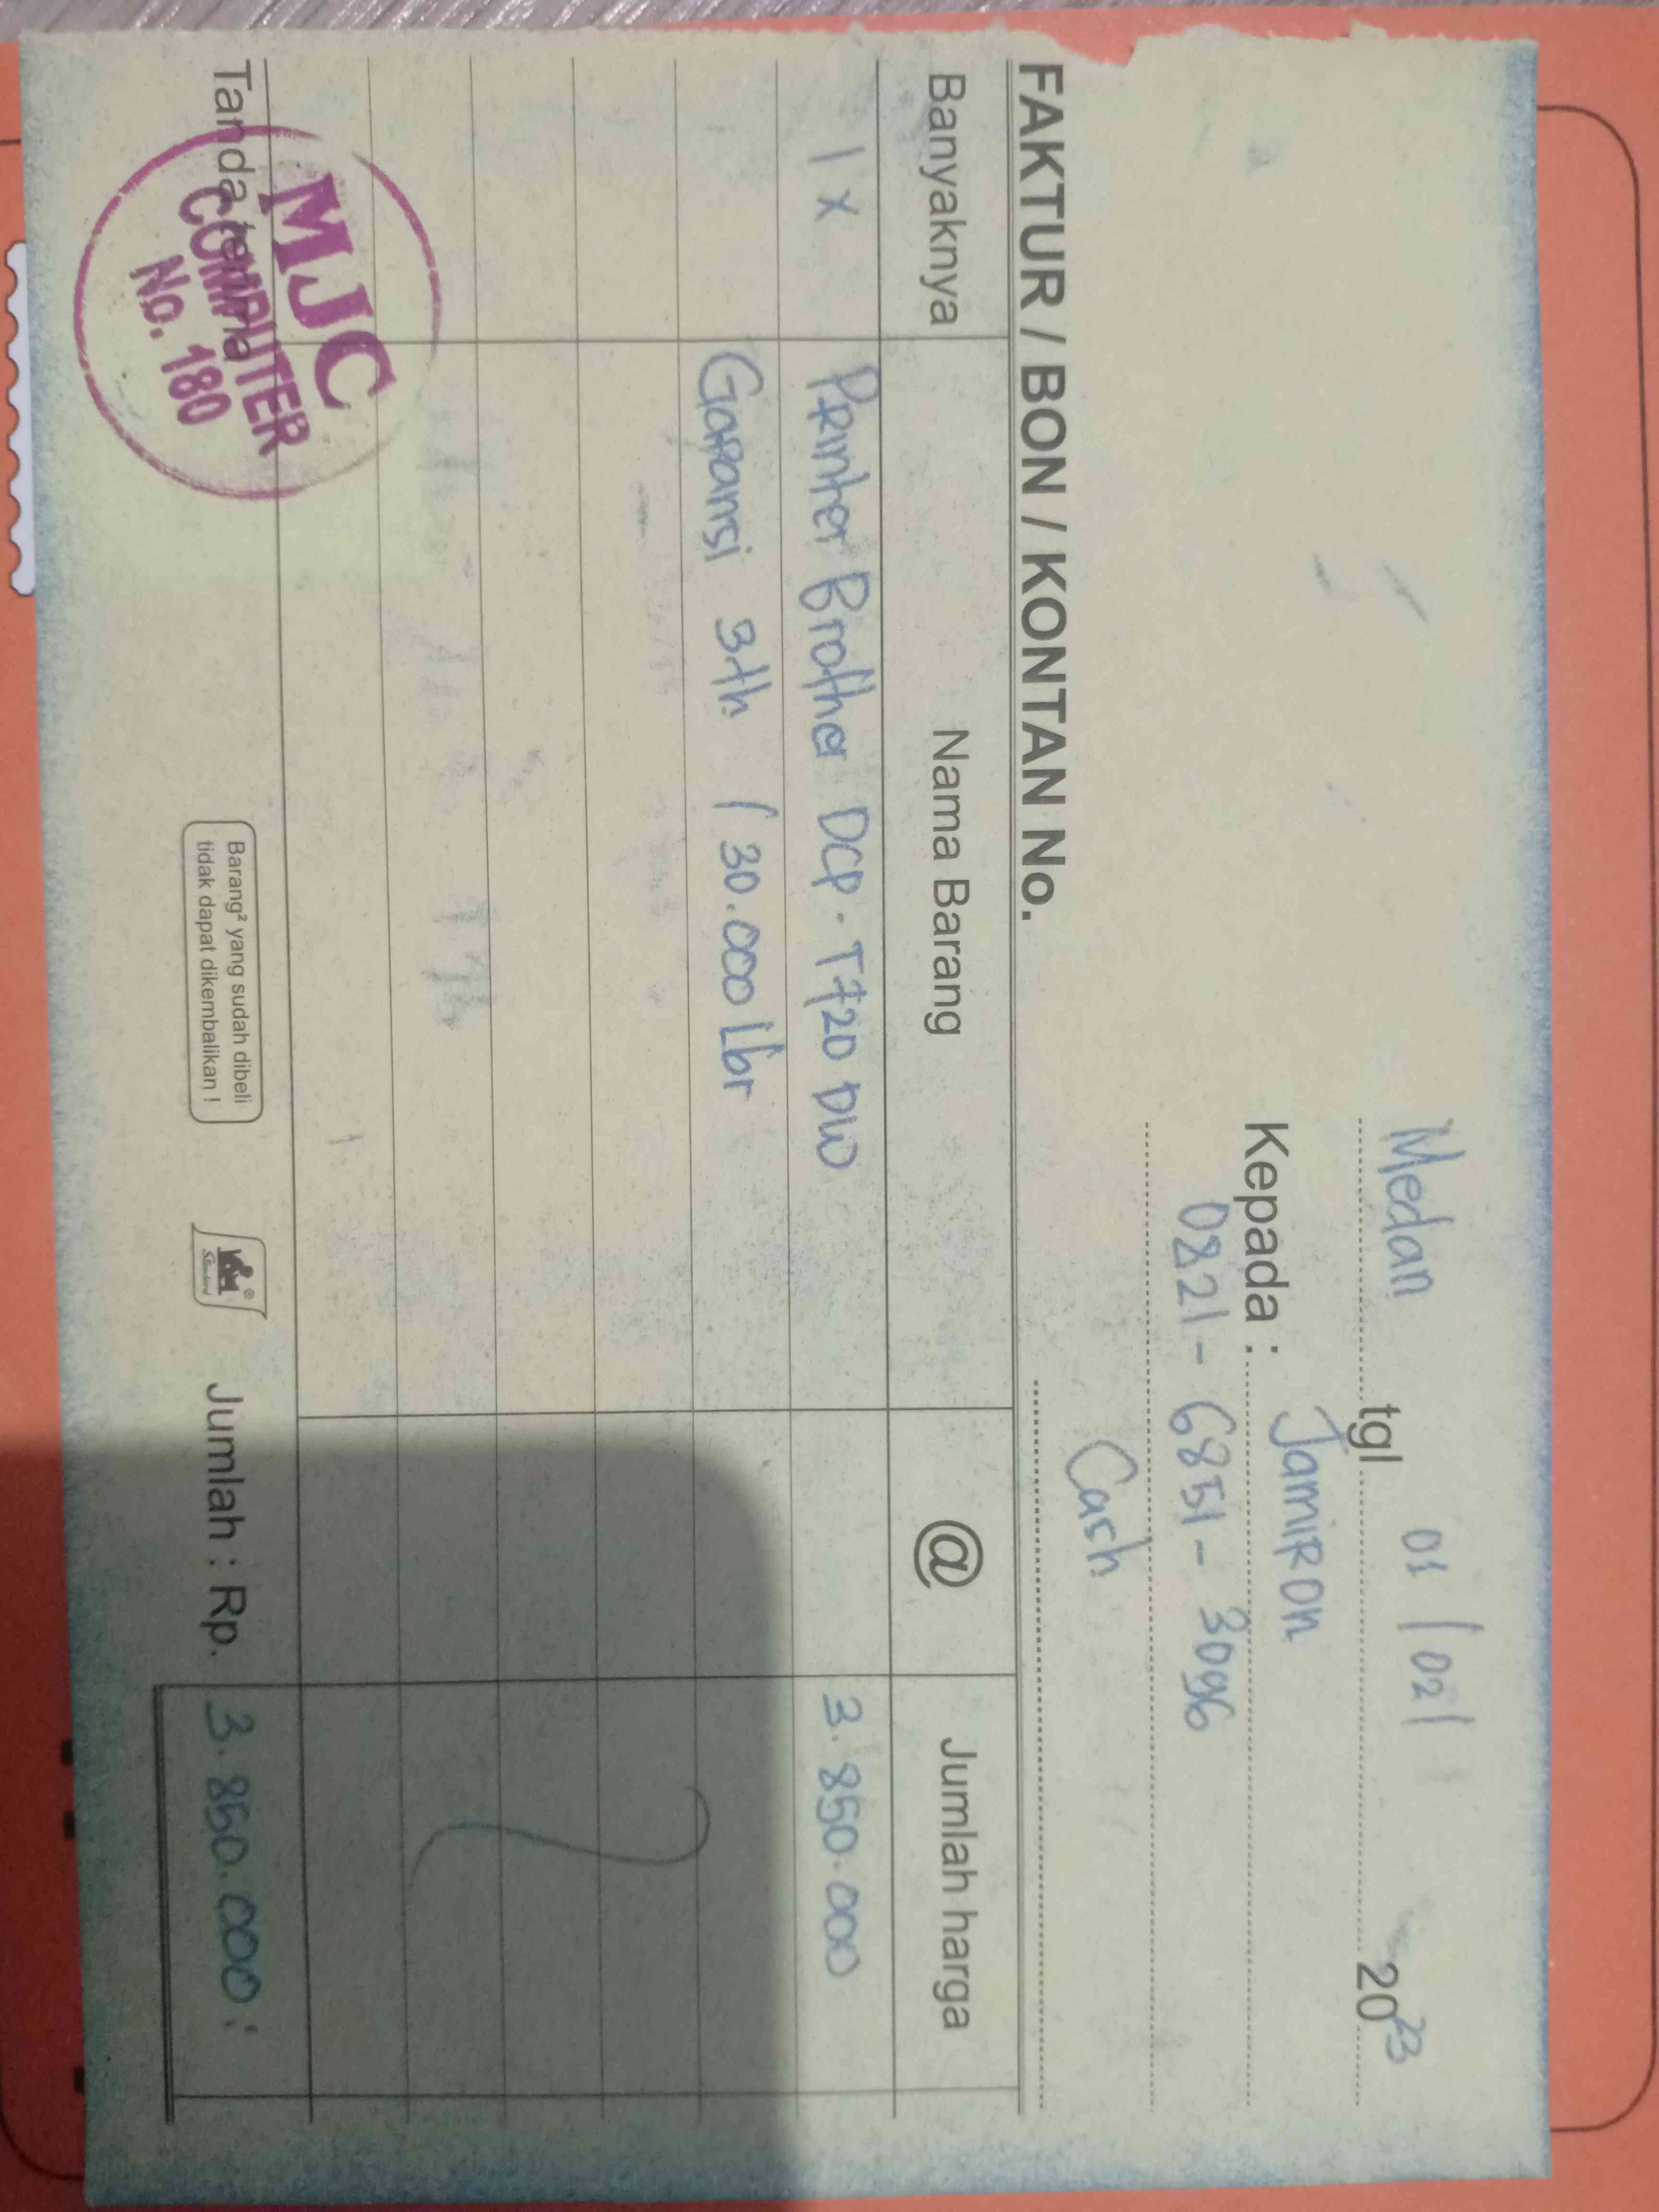 Medan tgl 01 / 02 / 2023
Kepada : Jamiron
0821 - 6851 - 3096
Cash
FAKTUR / BON / KONTAN No.
Banyaknya Nama Barang @ Jumlah harga
1 x Printer Brother DCP - T720 DW 3. 850.000
Garansi 3th / 30.000 Lbr
Tanda terima
MJC
COMPUTER
No. 180
Barang² yang sudah dibeli
tidak dapat dikembalikan !
Jumlah : Rp. 3. 850.000